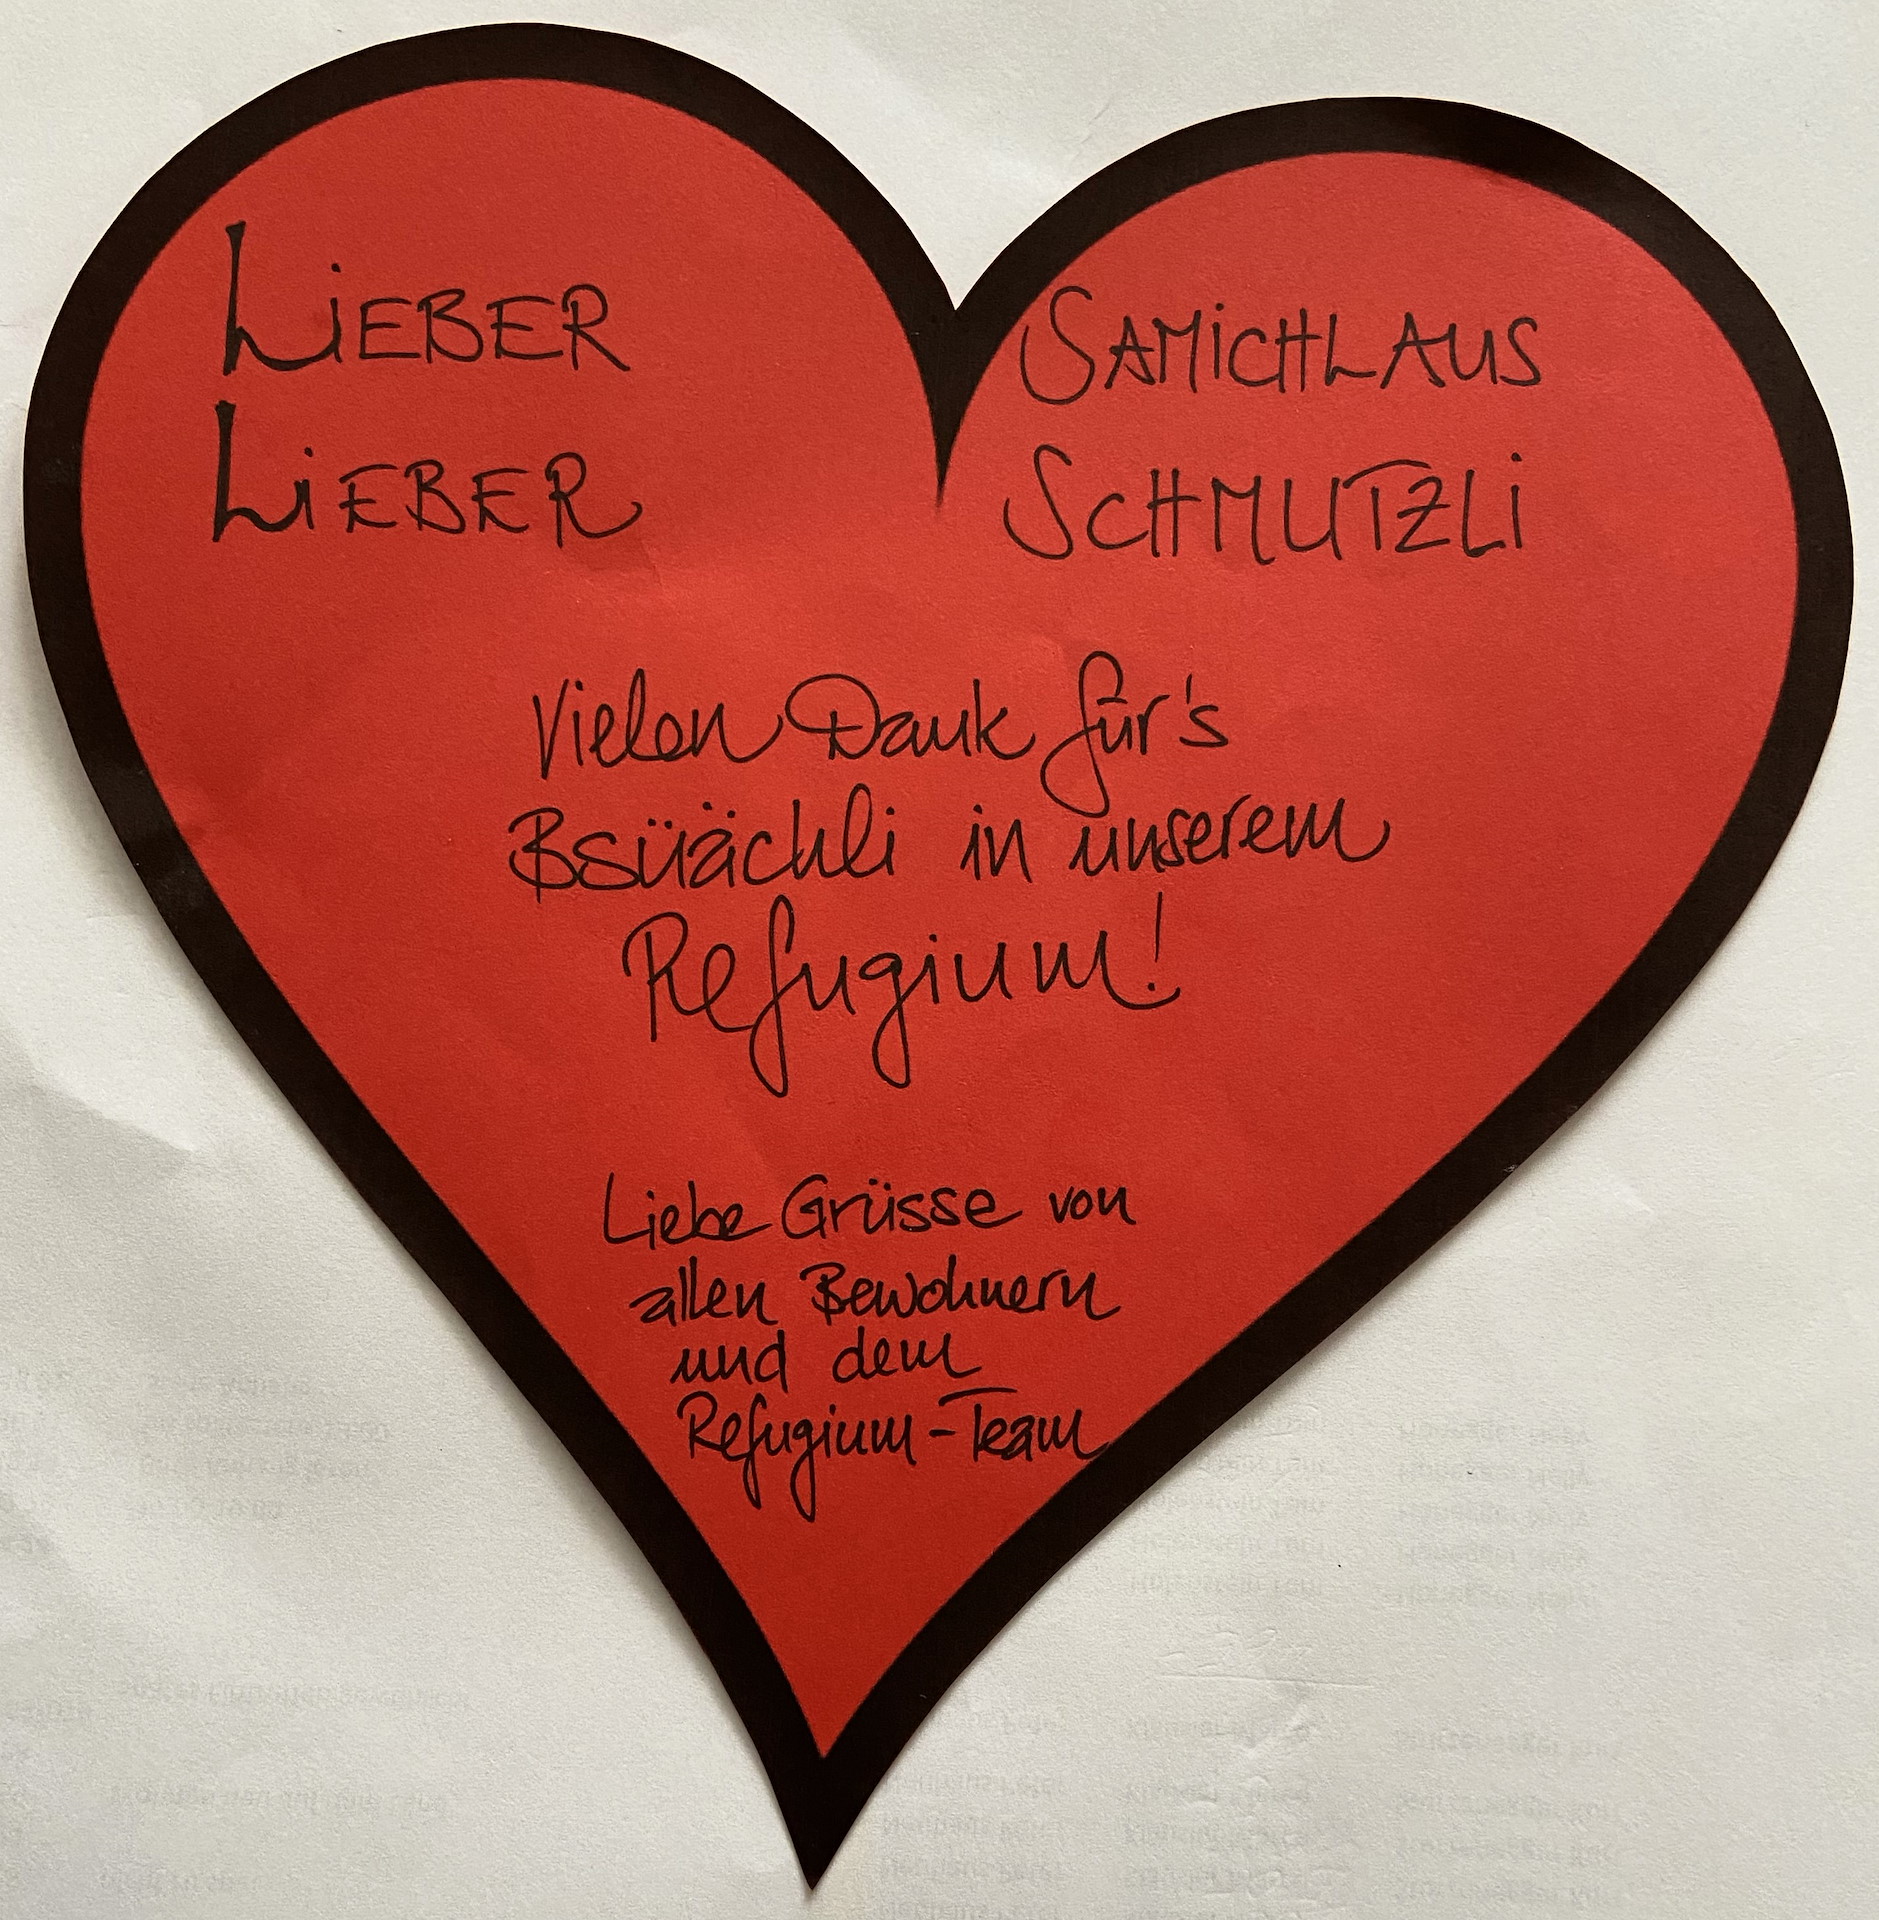 LiEBER SAMiCHLAUS
LiEBER SCHMUTZLi
Vielen Dank für's
Bsüächli in unserem
Refugium!
Liebe Grüsse von
allen Bewohnern
und dem
Refugium-Team